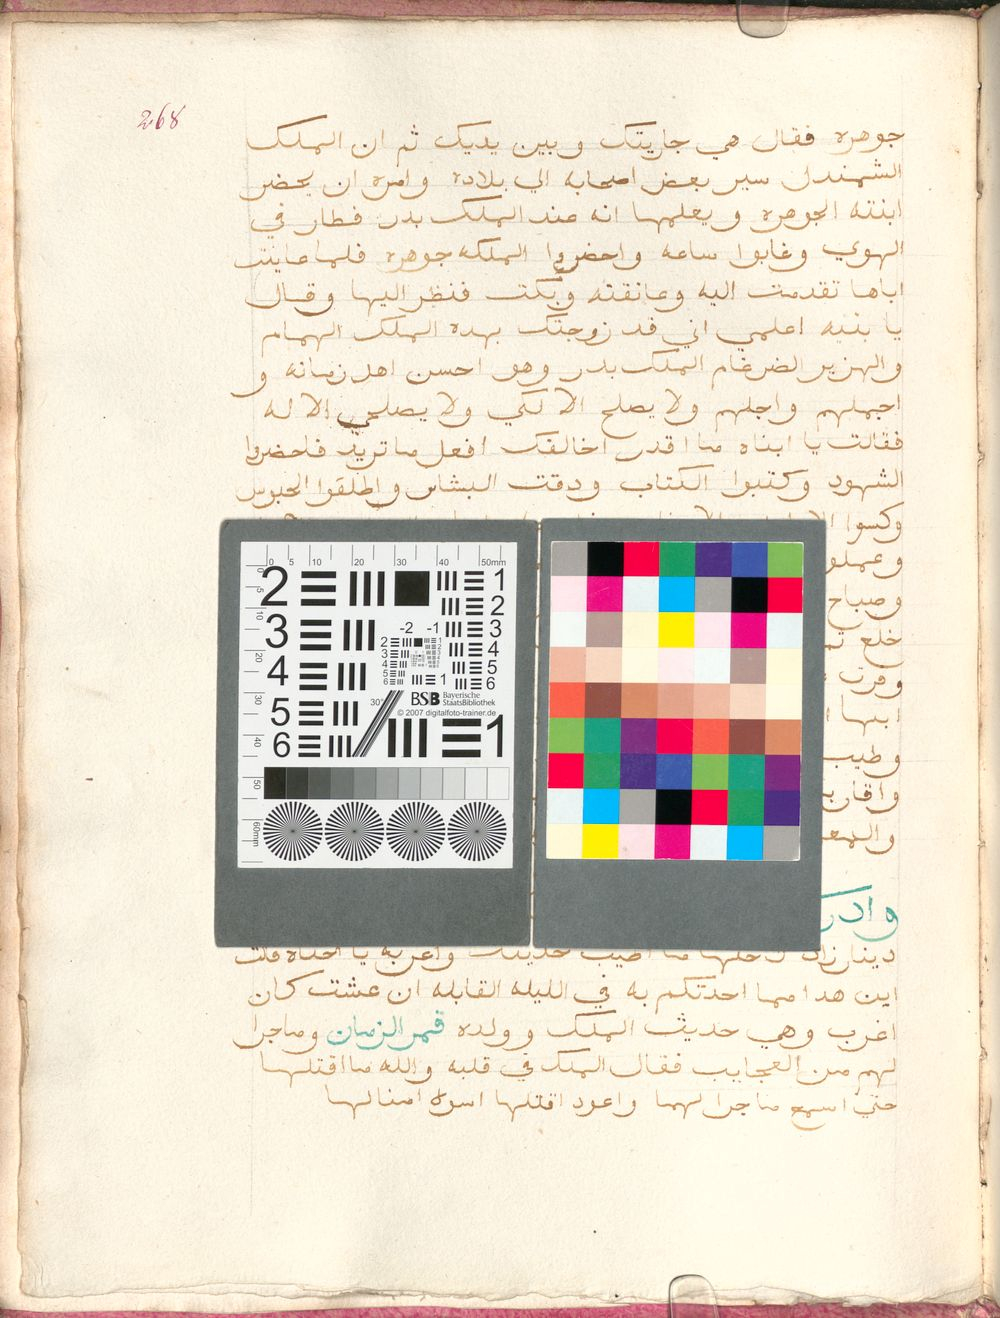 268
جوهره فقال هي جاريتك وبين يديك ثم ان الملك
الشمندل سير بعض اصحابه الي بلاده وامره ان يحضر
ابنته الجوهره ويعلمها انه عند الملك بدر فطار في
الهوي وغابوا ساعه واحضروا الملكه جوهره فلما عاينت
اباها تقدمت اليه وعانقته وبكت فنظر اليها وقال
يا بنيه اعلمي اني قد زوجتك بهده الملك الهمام
والهزبر الضرغام الملك بدر وهو احسن اهل زمانه و
اجملهم واجلهم ولا يصلح الا لكي ولا يصلحي الا له
فقالت يا ابتاه ما اقدر اخالفك افعل ما تريد فاحضروا
الشهود وكتبوا الكتاب ودقت البشاير واطلقوا الحبوس
وكسوا
وعملو
وصباح
خلع
وقرت
ابنها
وطيب
واقار
وادر
دينارزاد لاختها ما اطيب حديثك واغربه يا اختاه قلت
اين هدا مما احدتكم به في الليله القابله ان عشت كان
اغرب وهي حديث الملك وولده قمر الزمان وماجرا
لهم من العجايب فقال الملك في قلبه والله ما اقتلها
حتي اسمع ماجرا لهما واعود اقتلها اسوه امثالها
0 5 10 20 30 40 50mm
0 5 10 20 30 40 50 60mm
2 1
3 2
4 3
5 4
6 5
6
-2 -1
30°
1
BSB Bayerische StaatsBibliothek
© 2007 digitalfoto-trainer.de